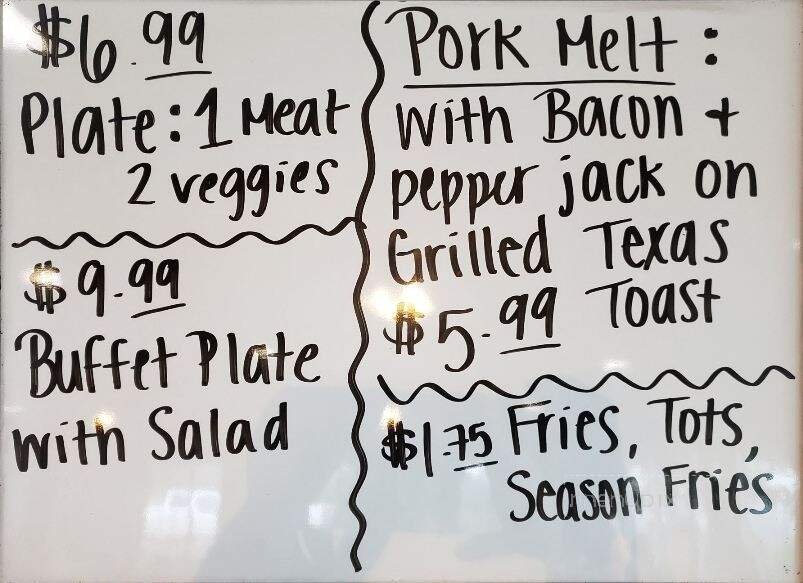 $6.99
Plate: 1 Meat
2 veggies
$9.99
Buffet Plate
with Salad
Pork Melt:
With Bacon +
pepper jack on
Grilled Texas
$5.99 Toast
$1.75 Fries, Tots,
Season Fries